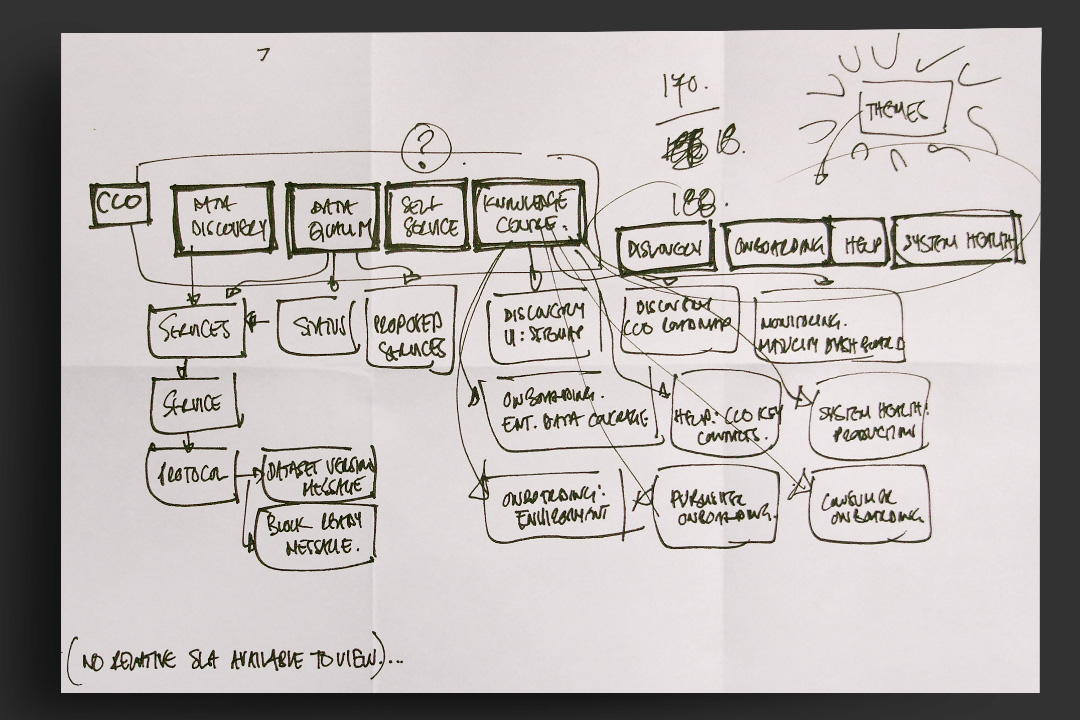 ?
170.
18.
188.
THEMES
CCO
DATA
DISCOVERY
DATA
QUALITY
SELF
SERVICE
KNOWLEDGE
DISCOVERY
ONBOARDING
HELP
SYSTEM HEALTH
SERVICES
STATUS
PROPOSED
SERVICES
DISCOVERY
UI: SITEMAP
DISCOVERY
CCO ROADMAP
MONITORING.
DASHBOARD
SERVICE
ONBOARDING.
ENT. DATA COURAGE
HELP: CCO KEY
CONTACTS.
SYSTEM HEALTH:
PRODUCTION
PROTOCOL
DATASET VERSION
MESSAGE
BLOCK READY
MESSAGE.
ONBOARDING:
ENVIRONMENT
PUBLISHER
ONBOARDING.
CONSUMER
ONBOARDING.
(NO RELATIVE SLA AVAILABLE TO VIEW.)...